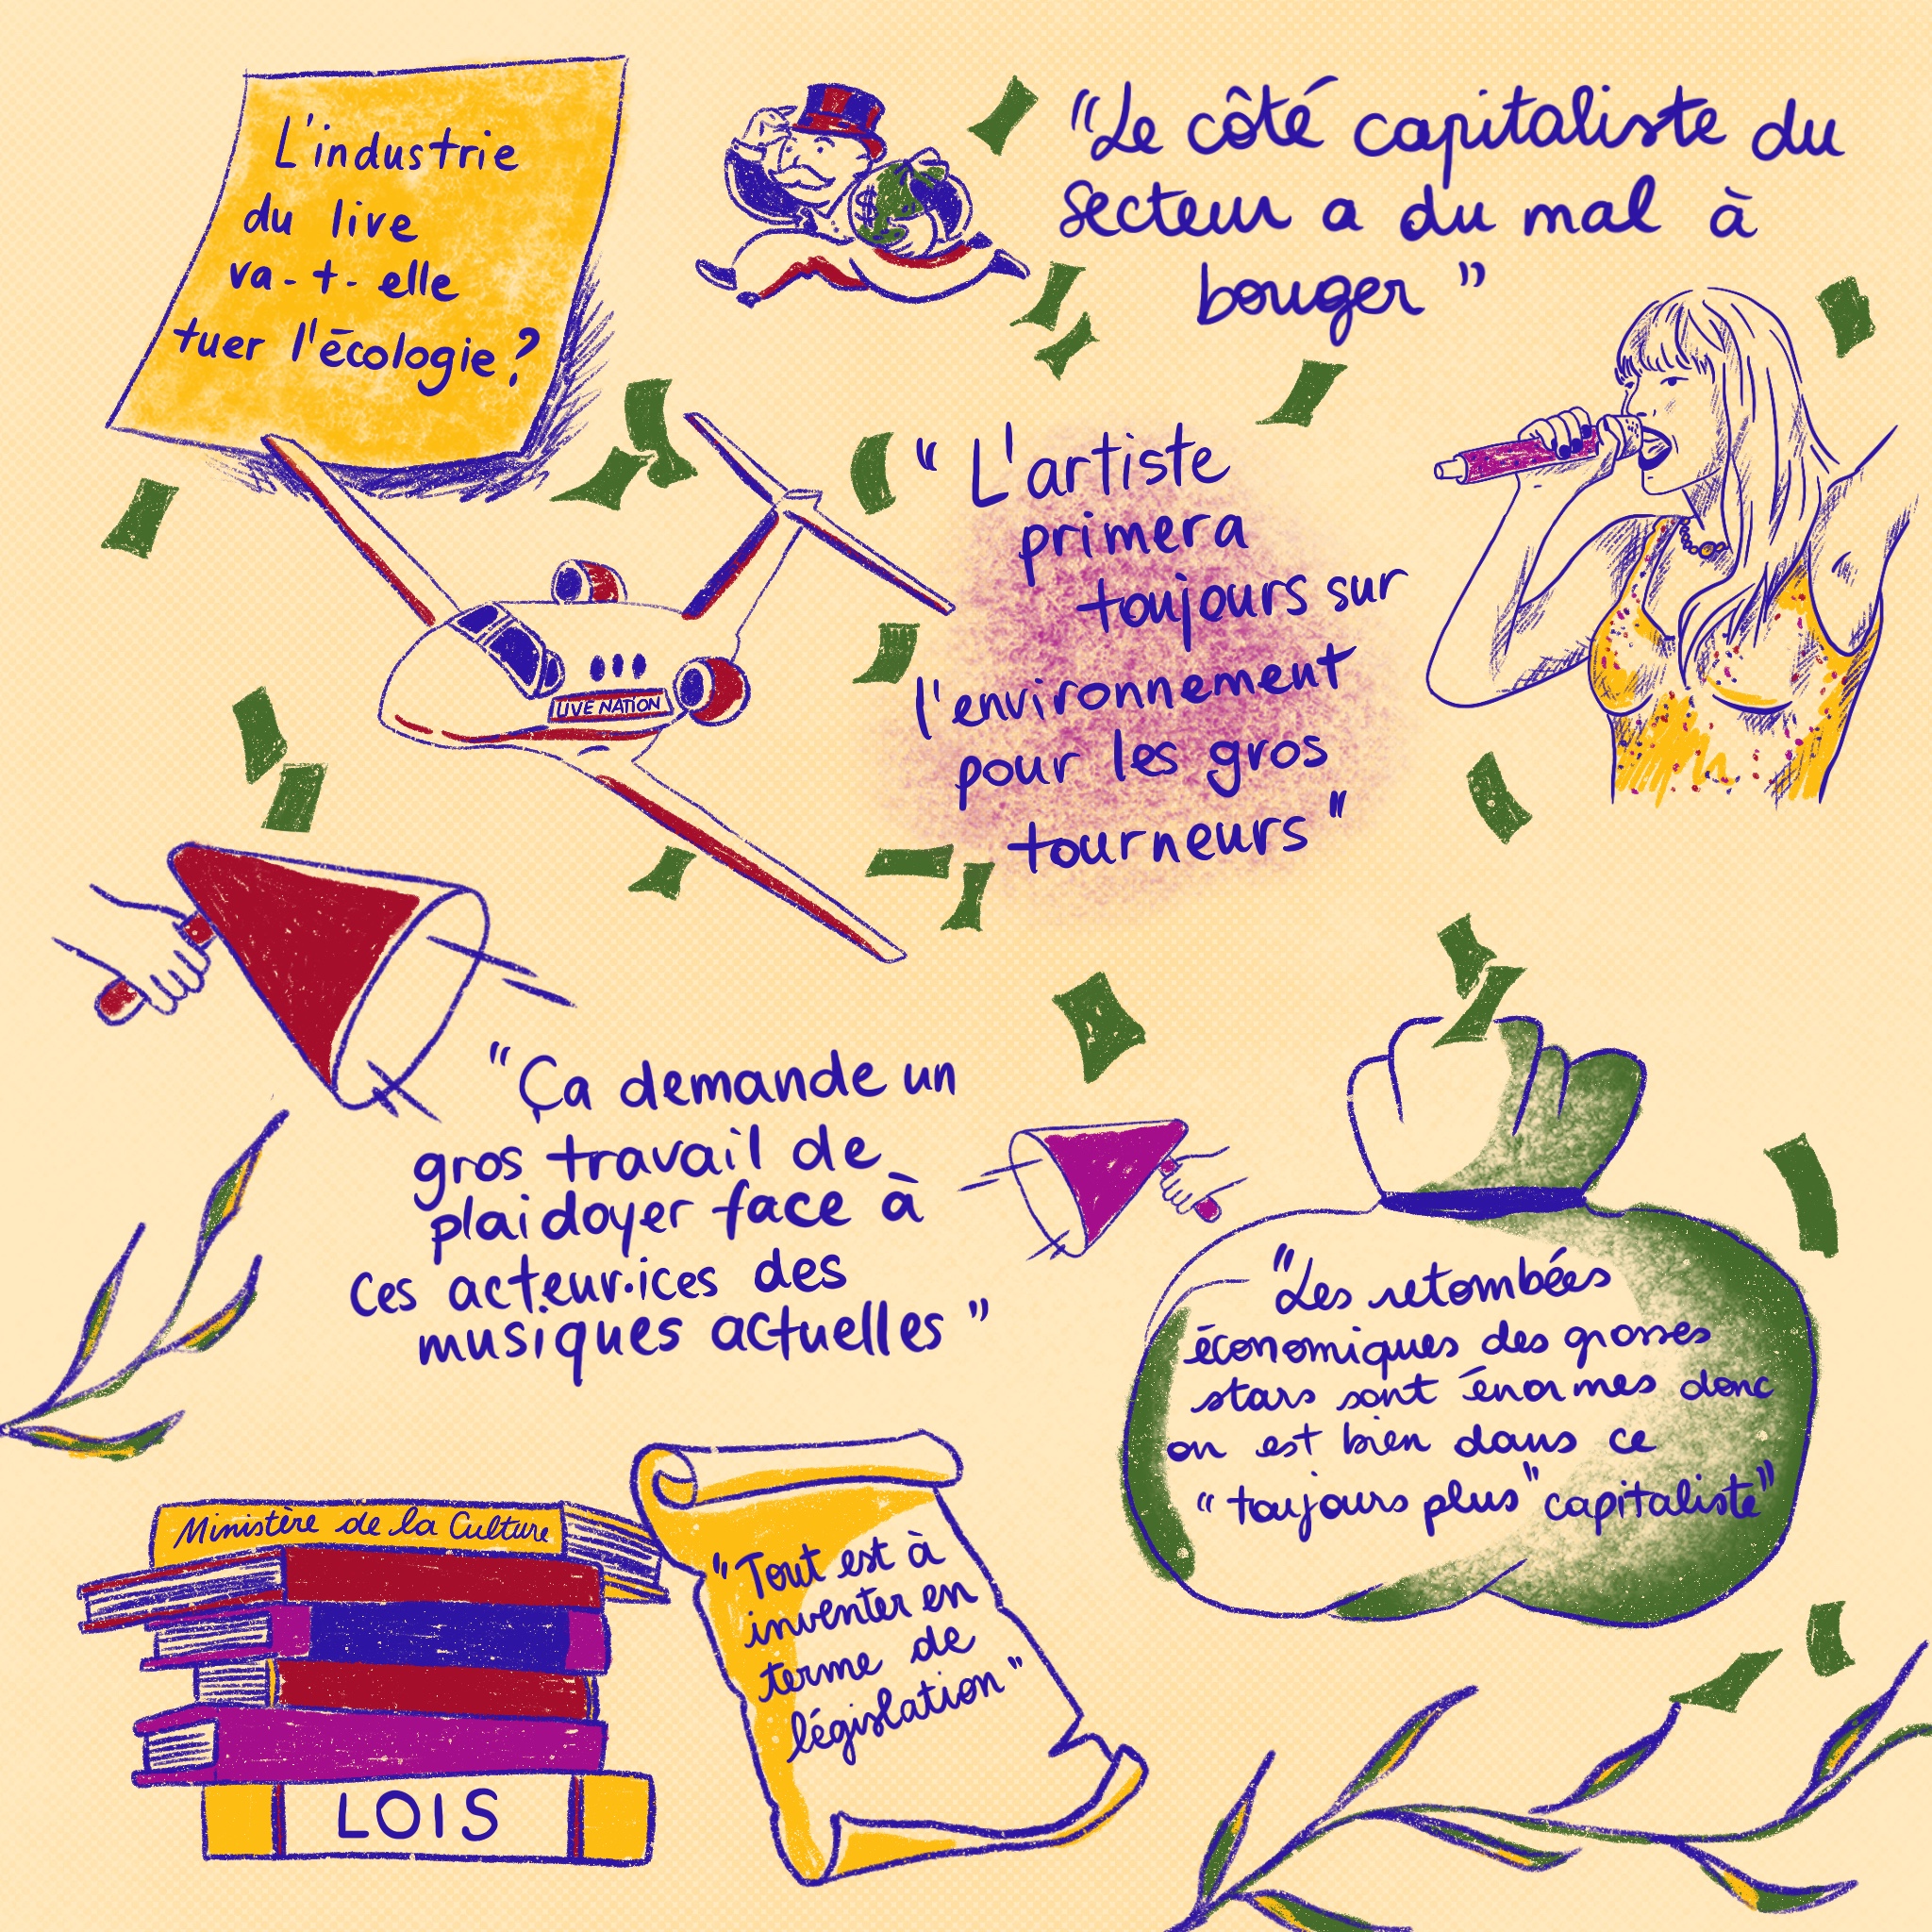 L'industrie
du live
va-t-elle
tuer l'écologie?
"Le côté capitaliste du
secteur a du mal à
bouger"
"L'artiste
primera
toujours sur
l'environnement
pour les gros
tourneurs"
LIVE NATION
$
"Ça demande un
gros travail de
plaidoyer face à
ces acteur·ices des
musiques actuelles"
"Les retombées
économiques des grosses
stars sont énormes donc
on est bien dans ce
"toujours plus" capitaliste"
Ministère de la Culture
LOIS
"Tout est à
inventer en
terme de
législation"